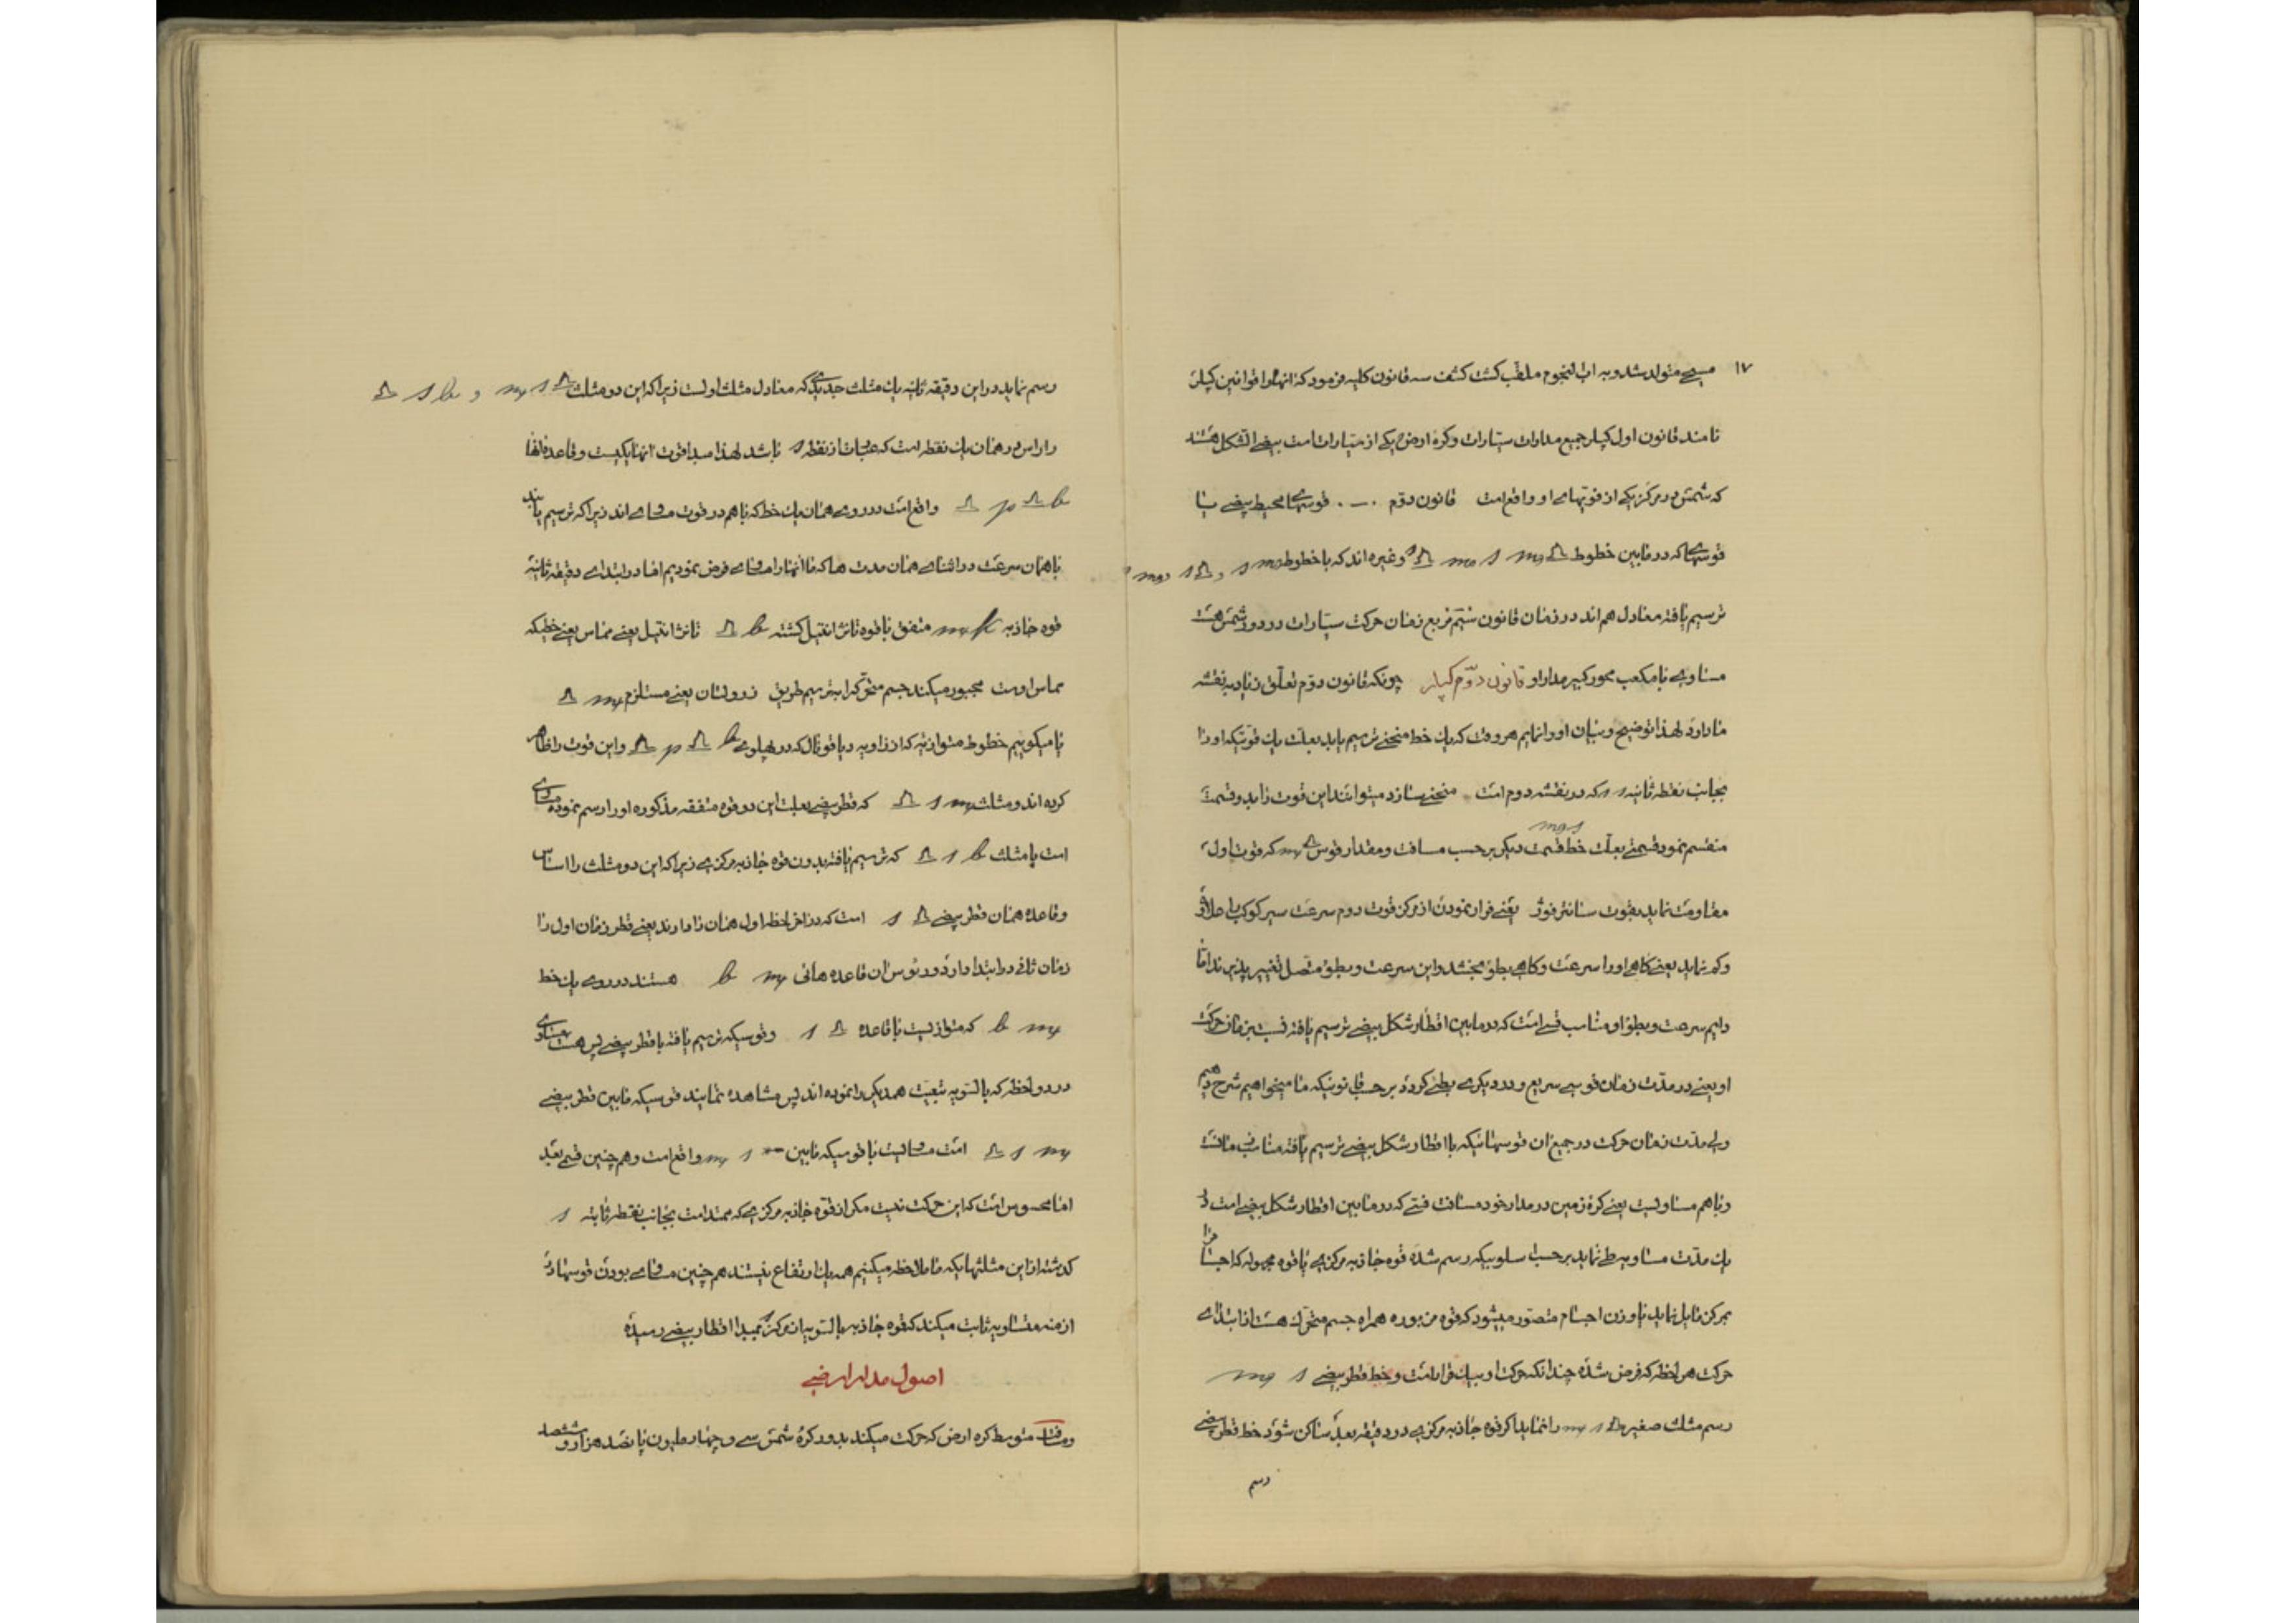 ١٧
مسیحی متولد شد و به اب النجوم ملقب کشت کشف سه قانون کلیه فرمود که انها را قوانین کپلر
نامند قانون اول کپلر جمیع مدارات سیارات و کره ارض یکی از سیارات است بیضی الشکل هستند
که شمس در مرکز یکی از فوتهای او واقع است قانون دوم ۰ — ۰ قوسهای محیط بیضی یا
قوسهائی که در مابین خطوط و غیره اند که با خطوط
ترسیم یافته معادل هم اند در زمان قانون سیّم تربع زمان حرکت سیارات در دور شمس هست
مساوی با مکعب محور کبیر مدار او قانون دوّم کپلر چونکه قانون دوّم تعلّق زیاد به نقشه
ما دارد لهذا توضیح و بیان او را نمایم هر وقت که یك خط منحنی ترسیم یابد بعلت یك قوتیکه او را
بجانب نقطه ثابته s که در نقشه دوم است منحنی سازد میتوانند این قوت زاید و قسمت
منقسم نمود قسمتی بعلت خط قسمت دیکر بر حسب مسافت و مقدار قوس که قوت اول
مقاومت نماید بقوت سانترفوژ یعنی فرار نمودن از مرکز قوت دوم سرعت سیر کوکب را
و کم نماید یعنی کاهی او را سرعت و کاهی بطوء بخشد و این سرعت و بطوء متصل تغییر پذیرند اما
دایم سرعت و بطوء او مناسب قسمی است که در مابین اقطار شکل بیضی ترسیم یافته نسبت بزمان حرکت
او یعنی در مدت زمان قوسی سریع و در دیکری بطئی کردد بر حسب قانونیکه ما میخواهیم شرح دهیم
ولی مدت زمان حرکت در جمیع ان قوسهائیکه با اقطار شکل بیضی ترسیم یافته متناسب مسافت
و با هم مساویست یعنی کره زمین در مدار خود مسافت قسمتی که در مابین اقطار شکل بیضی است در
یك مدت مساویه طی نماید بر حسب اسلوبیکه رسم شده قوه جاذبه مرکزی یا قوه مجهوله که اجسام را
بمرکز مایل نماید با وزن اجسام متصور میشود که قوه مزبوره همراه جسم متحرك هست از ابتدای
حرکت هر لحظه که فرض شده چندانکه حرکت او بیك قرار است و خط قطر بیضی s m
رسم مثلث صغیر را نماید اکر قوه جاذبه مرکزی در دقیقه بعد ساکن شود خط قطر بیضی
رسم
رسم نماید در این دقیقه ثانیه یك مثلث جدیدی که معادل مثلث اولست زیرا که این دو مثلث
را راس در همان یك نقطه است که عبارت از نقطه s باشد لهذا مبدا قوت انها یکیست و قاعده انها
واقع است در روی همان یك خط که با هم در قوت مساوی اند زیرا که ترسیم یابند
با همان سرعت در اثنای همان مدت ها که ما انها را مساوی فرض نمودیم اما در ابتدای دقیقه ثانیه
قوه جاذبه متفق با قوه تانژانتیل کشته تانژانتیل یعنی مماس یعنی خطیکه
مماس اوست مجبور میکند جسم متحرک را بترسیم طریق یعنی مستلزم
یا میکوییم خطوط متوازیه که از زاویه دیاقونال که در پهلوی و این قوت را ظاهر
کرده اند و مثلث که قطر بیضی بعلت این دو قوه متفقه مذکوره او را رسم نموده مساوی
است با مثلث که ترسیم یافته بدون قوه جاذبه مرکزی زیرا که این دو مثلث را اساس
و قاعده همان قطر بیضی است که در اخر لحظه اول همان را دارند یعنی قطر زمان اول را
زمان ثانی در ابتدا دارد و رئوس ان قاعده هائی b m هستند در روی یك خط
m b که متوازیست با قاعده و قوسیکه ترسیم یافته با قطر بیضی پس هست مساوی
در دو لحظه که بالسویه تبعیت همدیکر را نموده اند پس مشاهده نمایند قوسیکه مابین قطر بیضی
است مساویست با قوسیکه مابین واقع است و هم چنین قسم بعید
اما محسوس است که این حرکت نیست مکر از قوه جاذبه مرکزی که ممتد است بجانب نقطه ثابته s
کذشته از این مثلثهائیکه ما ملاحظه میکنیم همه یك ارتفاع نیستند هم چنین مساوی بودن قوسها در
ازمنه متساویه ثابت میکند که قوه جاذبه بالسویه از مرکز بمبدا اقطار بیضی رسیده
اصول مدار ارضی
مسافت متوسط کره ارض که حرکت میکند بدور کره شمس سی و چهار ملیون پانصد هزار و ششصد